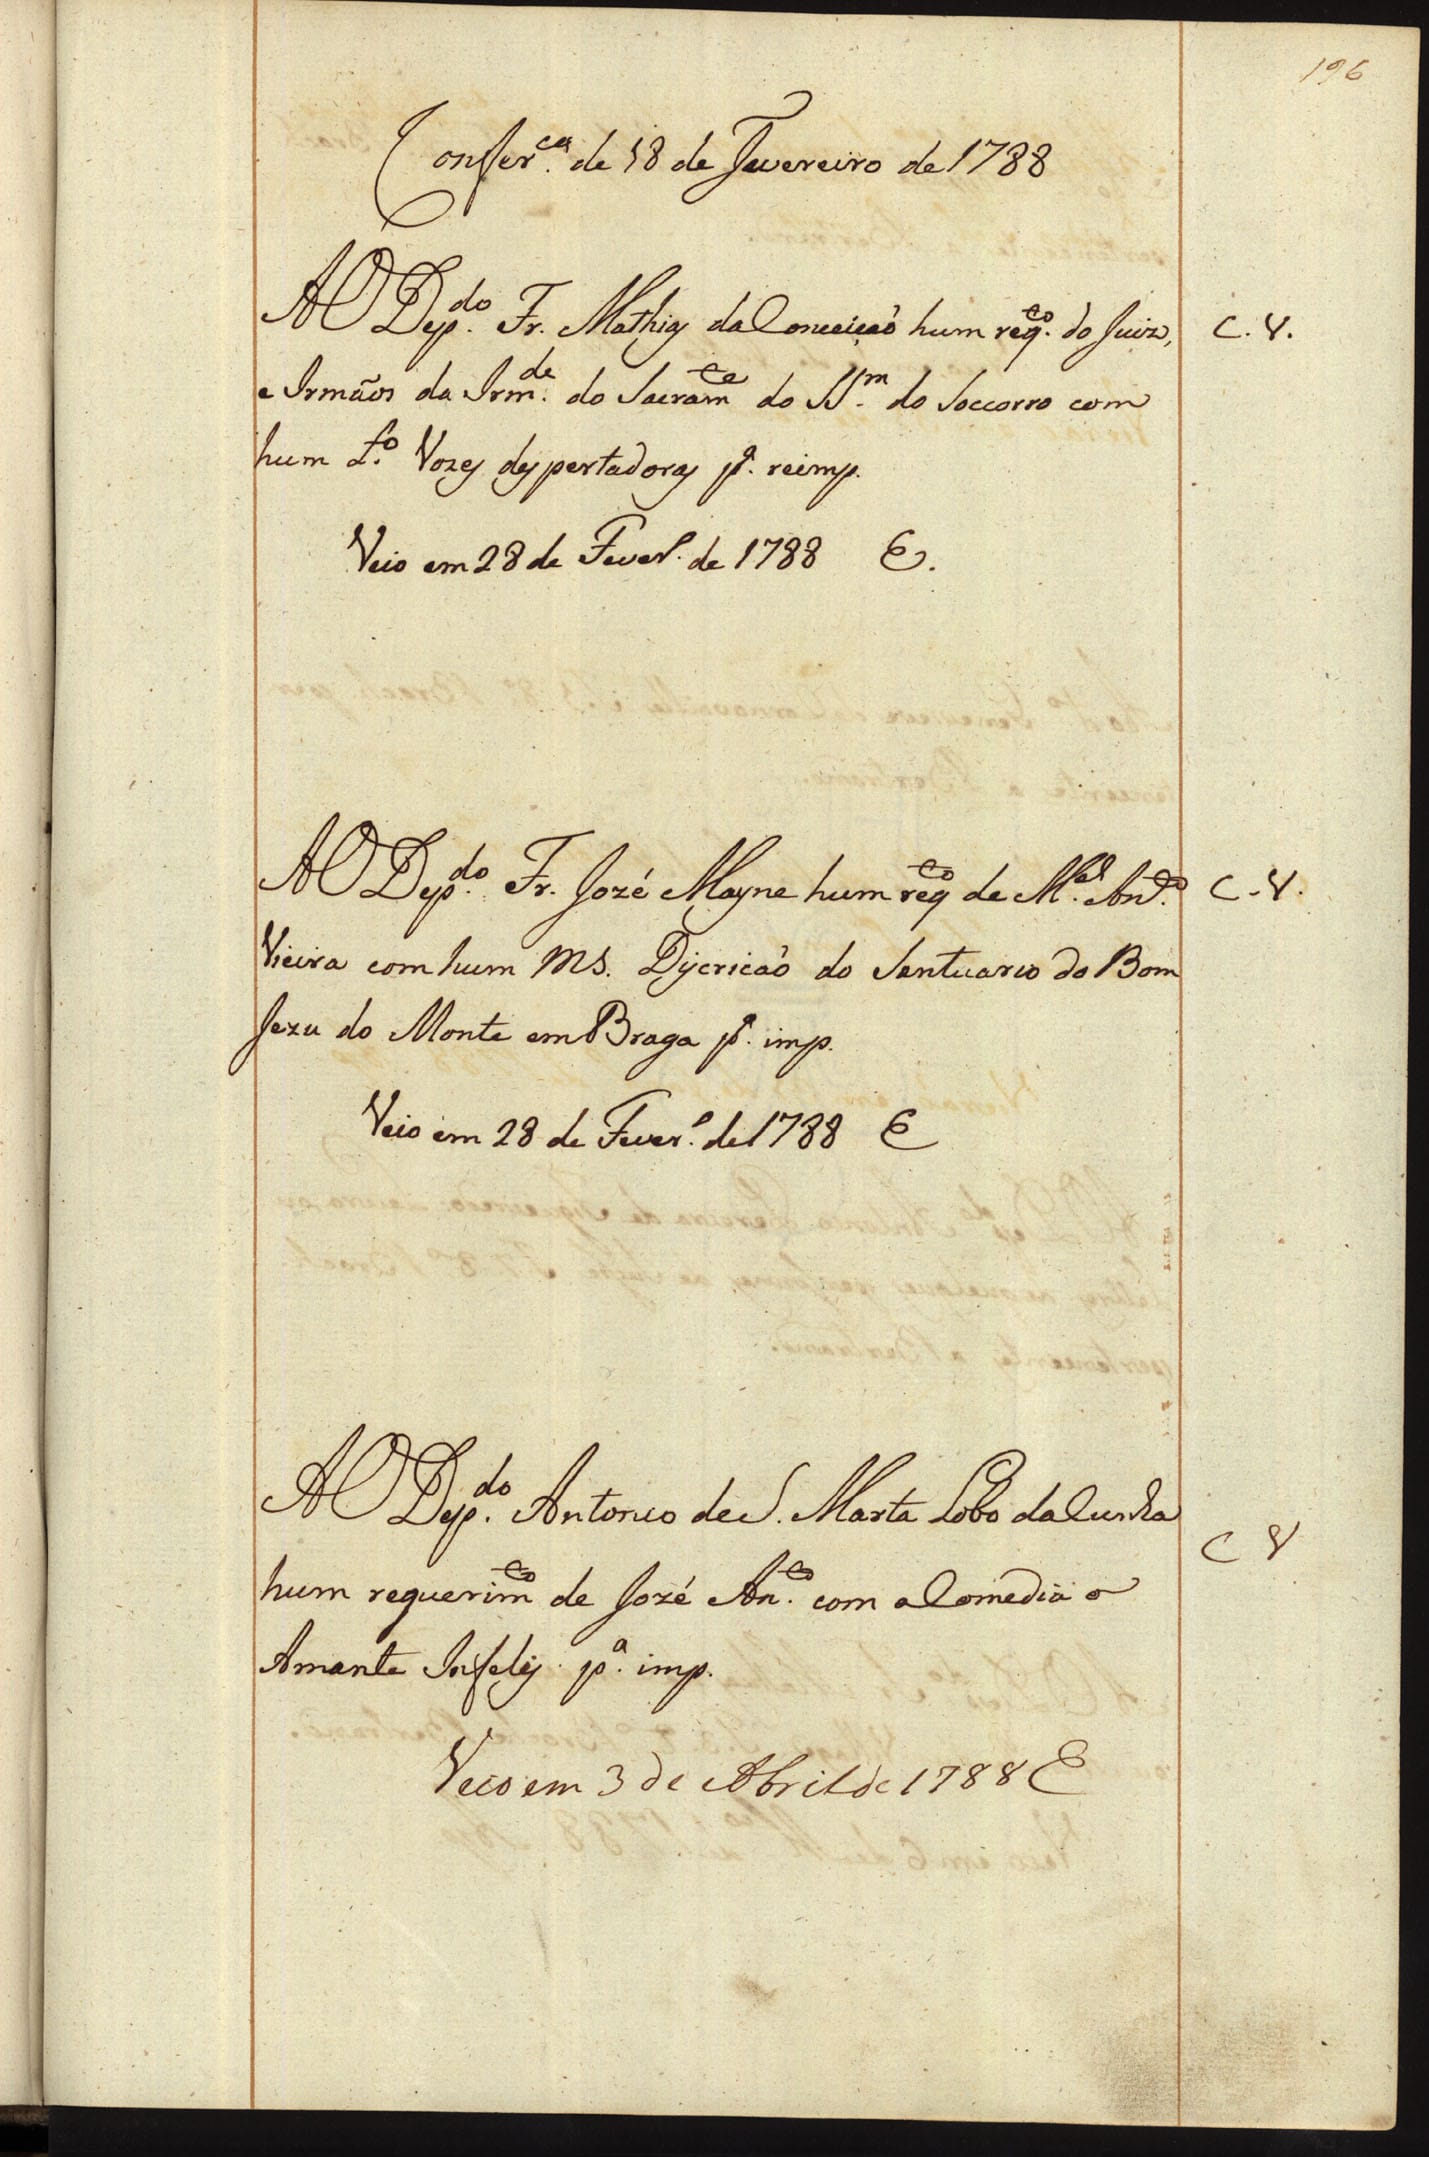 196
Confer.ca de 18 de Fevereiro de 1788
AO Dep.do Fr. Mathias da Conceição hum req.to do Juiz, C. V.
e Irmãos da Irm.de do Sacram.to do SS.m do Soccorro com
hum L.o Vozes despertadoras p.a reimp.
Veio em 28 de Fever.o de 1788 E.
AO Dep.do Fr. Jozé Mayne hum req.to de M.el Ant.o C. V.
Vieira com hum MS. Discrição do Santuario do Bom
Jezu do Monte em Braga p.a imp.
Veio em 28 de Fever.o de 1788 E
AO Dep.do Antonio de S. Marta Lobo da Cunha
hum requerim.to de Jozé An.to com a Comedia o C V
Amante Infelis p.a imp.
Veio em 3 de Abril de 1788 E